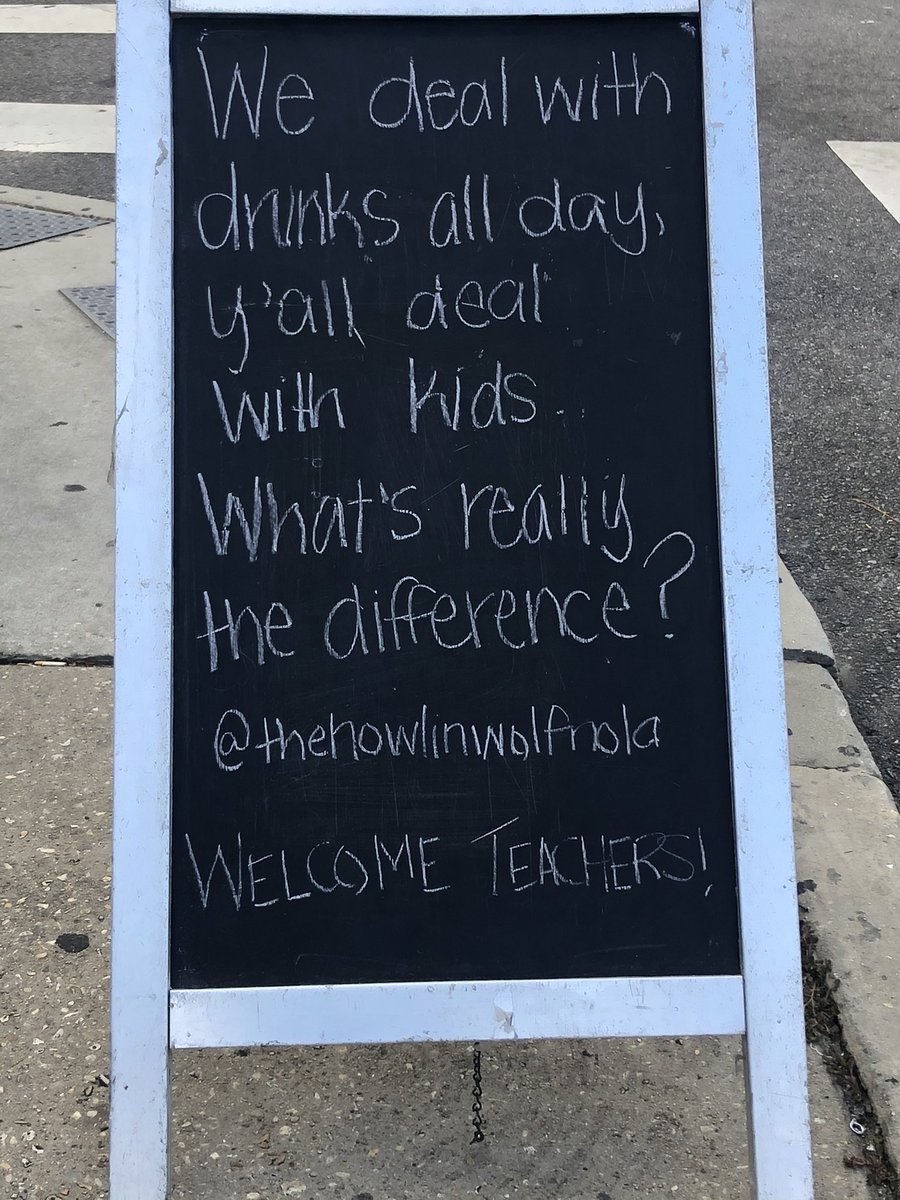 We deal with
drunks all day,
y'all deal
with kids..
What's really
the difference?
@thehowlinwolfnola
WELCOME TEACHERS!